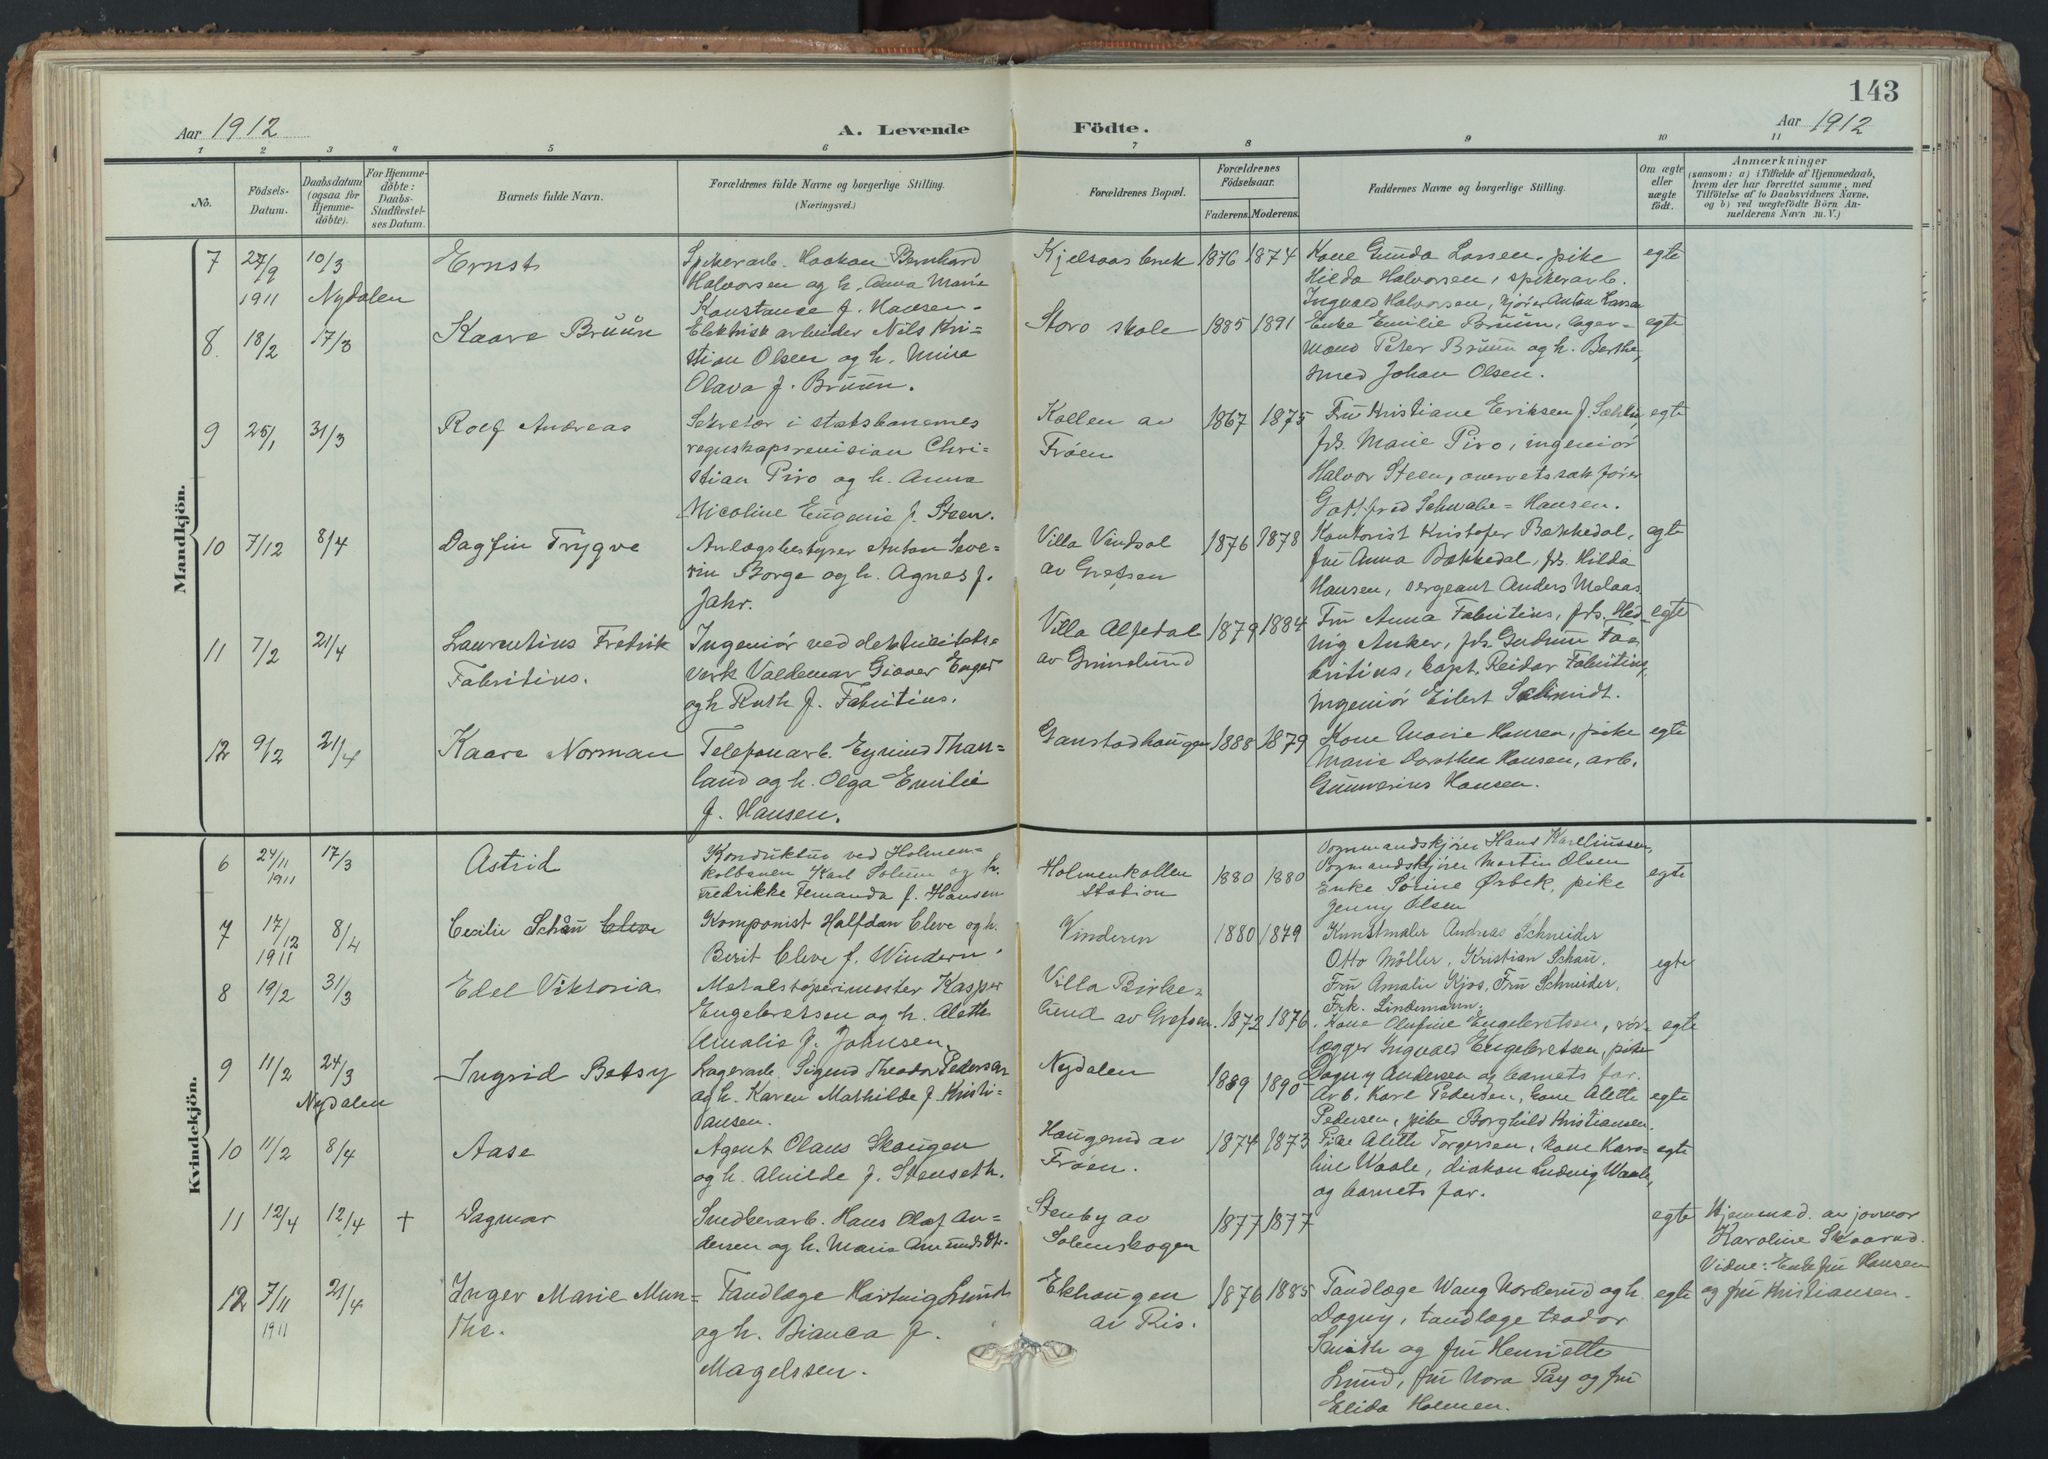 143
Aar 1912
A. Levende
Födte.
Aar 1912
1 2 3 4 5 6 7 8 9 10 11
No.
Födsels-Datum.
Daabsdatum (ogsaa for Hjemmedöbte).
For Hjemmedöbte: Daabs-Stadfestelses Datum.
Barnets fulde Navn.
Forældrenes fulde Navne og borgerlige Stilling.
(Næringsvei.)
Forældrenes Bopæl.
Forældrenes Födselsaar.
Faderens. Moderens.
Faddernes Navne og borgerlige Stilling.
Om ægte eller uægte födt.
Anmærkninger
(saasom: a) i Tilfælde af Hjemmedaab, hvem der har forrettet samme, med Tilföielse af to Daabsvidners Navne, og b) ved uægtefödte Börn Anmelderens Navn m. V.)
Mandkjön.
7 27/9 1911 10/3 Nydalen Ernst
Spikerarb. Haakon Bernhard
Halvorsen og h. Anna Marie
Konstanse f. Hansen.
Kjelsaas bruk 1876 1874
Kone Gunda Larsen, pike
Hilda Halvorsen, spikerarb.
Ingvald Halvorsen, kjører Anton Larsen
egte
8. 18/2 17/3 Kaare Bruun
Elektrisk arbeider Nils Kri-
stian Olsen og h. Mina
Olava f. Bruun.
Storo skole 1885 1891
Enke Emilie Bruun, lager-
mand Peter Bruun og h. Berthe,
smed Johan Olsen.
egte
9 25/1 31/3 Rolf Andreas
Sekretær i statsbanernes
regnskapsrevision Chri-
stian Piro og h. Anna
Nicoline Eugenie f. Steen.
Kollen av
Frøen
1867 1875
Fru Kristiane Eriksen f.
frk. Marie Piro, ingeniør
Halvor Steen, overretssakfører
Gottfred Schwabe-Hansen.
egte
10 7/12 8/4 Dagfin Trygve
Anlægsbestyrer Anton Seve-
rin Borge og h. Agnes f.
Jahr.
Villa Vindsol
av Grefsen
1876 1878
Kontorist Kristofer Bækkedal,
fru Anna Bækkedal, frk. Hilda
Hansen, sergeant Anders Melaas
egte
11 7/2 21/4 Laurentius Fredrik
Fabritius.
Ingeniør ved elektricitets-
verk Valdemar Giøver Enger
og h. Ruth f. Fabritius.
Villa Alfedal
av Grimelund
1879 1884
Fru Anna Fabritius, frk. Hed-
vig Anker, frk. Gudrun Fa-
britius, kapt. Reidar Fabritius,
ingeniør Eilert Schmidt.
egte
12 9/2 21/4 Kaare Norman
Telefonarb. Eyvind Than-
land og h. Olga Emilie
f. Hansen.
Ganstadhaugen 1888 1879
Kone Marie Hansen, pike
Marie Dorothea Hansen, arb.
Gunnerius Hansen.
egte
Kvindekjön.
6 27/11 1911 17/3 Astrid
Konduktør ved Holmen-
kolbanen Karl Solum og h.
Fredrikke Fernanda f. Hansen
Holmenkollen
station
1880 1880
Vognmandskjører Hans Kareliussen,
Vognmandskjører Martin Olsen
Enke Sørine Ørbek, pike
Jenny Olsen
egte
7 17/12 1911 8/4 Cecilie Schåu Cleve
Komponist Halfdan Cleve og h.
Berit Cleve f. Windern.
Vinderen 1880 1879
Kunstmaler Andreas Schneider
Otto Møller, Kristian Schau,
Fru Amalie Kjos, Fru Schneider,
Frk. Lindemann.
egte
8 19/2 31/3 Edel Viktoria
Metalstøperimester Kasper
Engebretsen og h. Aleth
Amalie f. Johnsen.
Villa Birke-
lund av Grefsen. 1872 1876
Kone Olufine Engebretsen, rør-
lægger Ingvald Engebretsen, pike
Dagny Andersen og barnets far.
egte
9 11/2 24/3 Nydalen Ingrid Betsy
Lagerarb. Sigurd Theodor Pedersen
og h. Karen Mathilde f. Kristi-
ansen.
Nydalen 1889 1890
Arb. Karl Pedersen, kone Alette
Pedersen, pike Borghild Kristiansen.
egte
10 11/2 8/4 Aase
Agent Olaus Skougen
og h. Alvilde f. Stenseth.
Haugerud av
Frøen.
1874 1873
Pike Aleth Torgersen, kone Karo-
line Waale, diakon Ludvig Waale,
og barnets far.
egte
11 12/4 12/4 + Dagmar
Snedkerarb. Hans Olaf An-
dersen og h. Maria Amundsdtr.
Stenby av
Solemskogen
1877 1877
egte
Hjemmed. av jormor
Karoline Skaarud.
Vidne: Enkefru Hansen
og fru Kristiansen.
12 7/11 1911 21/4 Inger Marie Mun-
the.
Tandlæge Hartvig Lund
og h. Bianca f.
Magelssen.
Ekhaugen
av Ris.
1876 1885
Tandlæge Wang Norderud og h.
Dagny, tandlæge Isador
Smith og fru Henriette
Lund, fru Nora Pay og fru
Elida Holmen.
egte